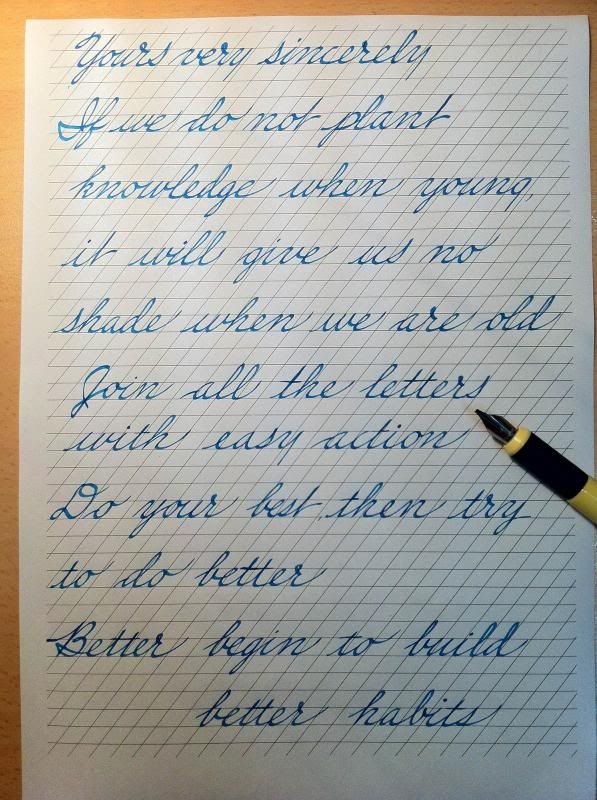 Yours very sincerely
If we do not plant
knowledge when young,
it will give us no
shade when we are old
Join all the letters
with easy action
Do your best, then try
to do better
Better begin to build
better habits